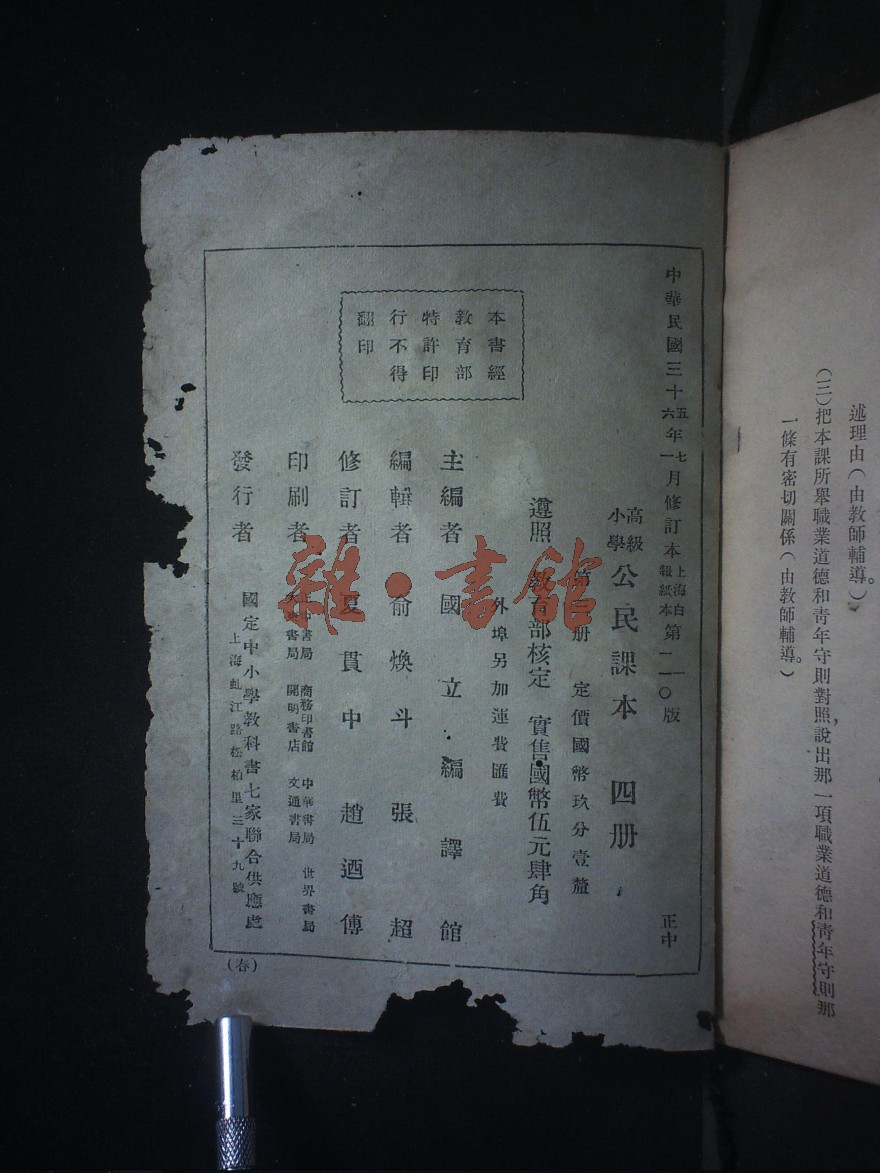 述理由（由教師輔導。）
（三）把本課所舉職業道德和青年守則對照，說出那一項職業道德和青年守則那
一條有密切關係（由教師輔導。）
中華民國三十五年七月修訂本上海白報紙本第一版
六 一 一一〇
高級小學 公民課本 四册
第 册 定價國幣玖分壹釐
遵照 教育部核定 實售國幣伍元肆角
外埠另加運費匯費
正中
本書經
教育部
特許印
行不得
翻印
主編者 國立編譯館
編輯者 俞煥斗 張超
修訂者 夏貫中 趙迺傳
印刷者 正中書局 商務印書館 中華書局 世界書局
大東書局 開明書店 文通書局
發行者 國定中小學教科書七家聯合供應處
上海虬江路松柏里三十九號
（春）
雜·書館